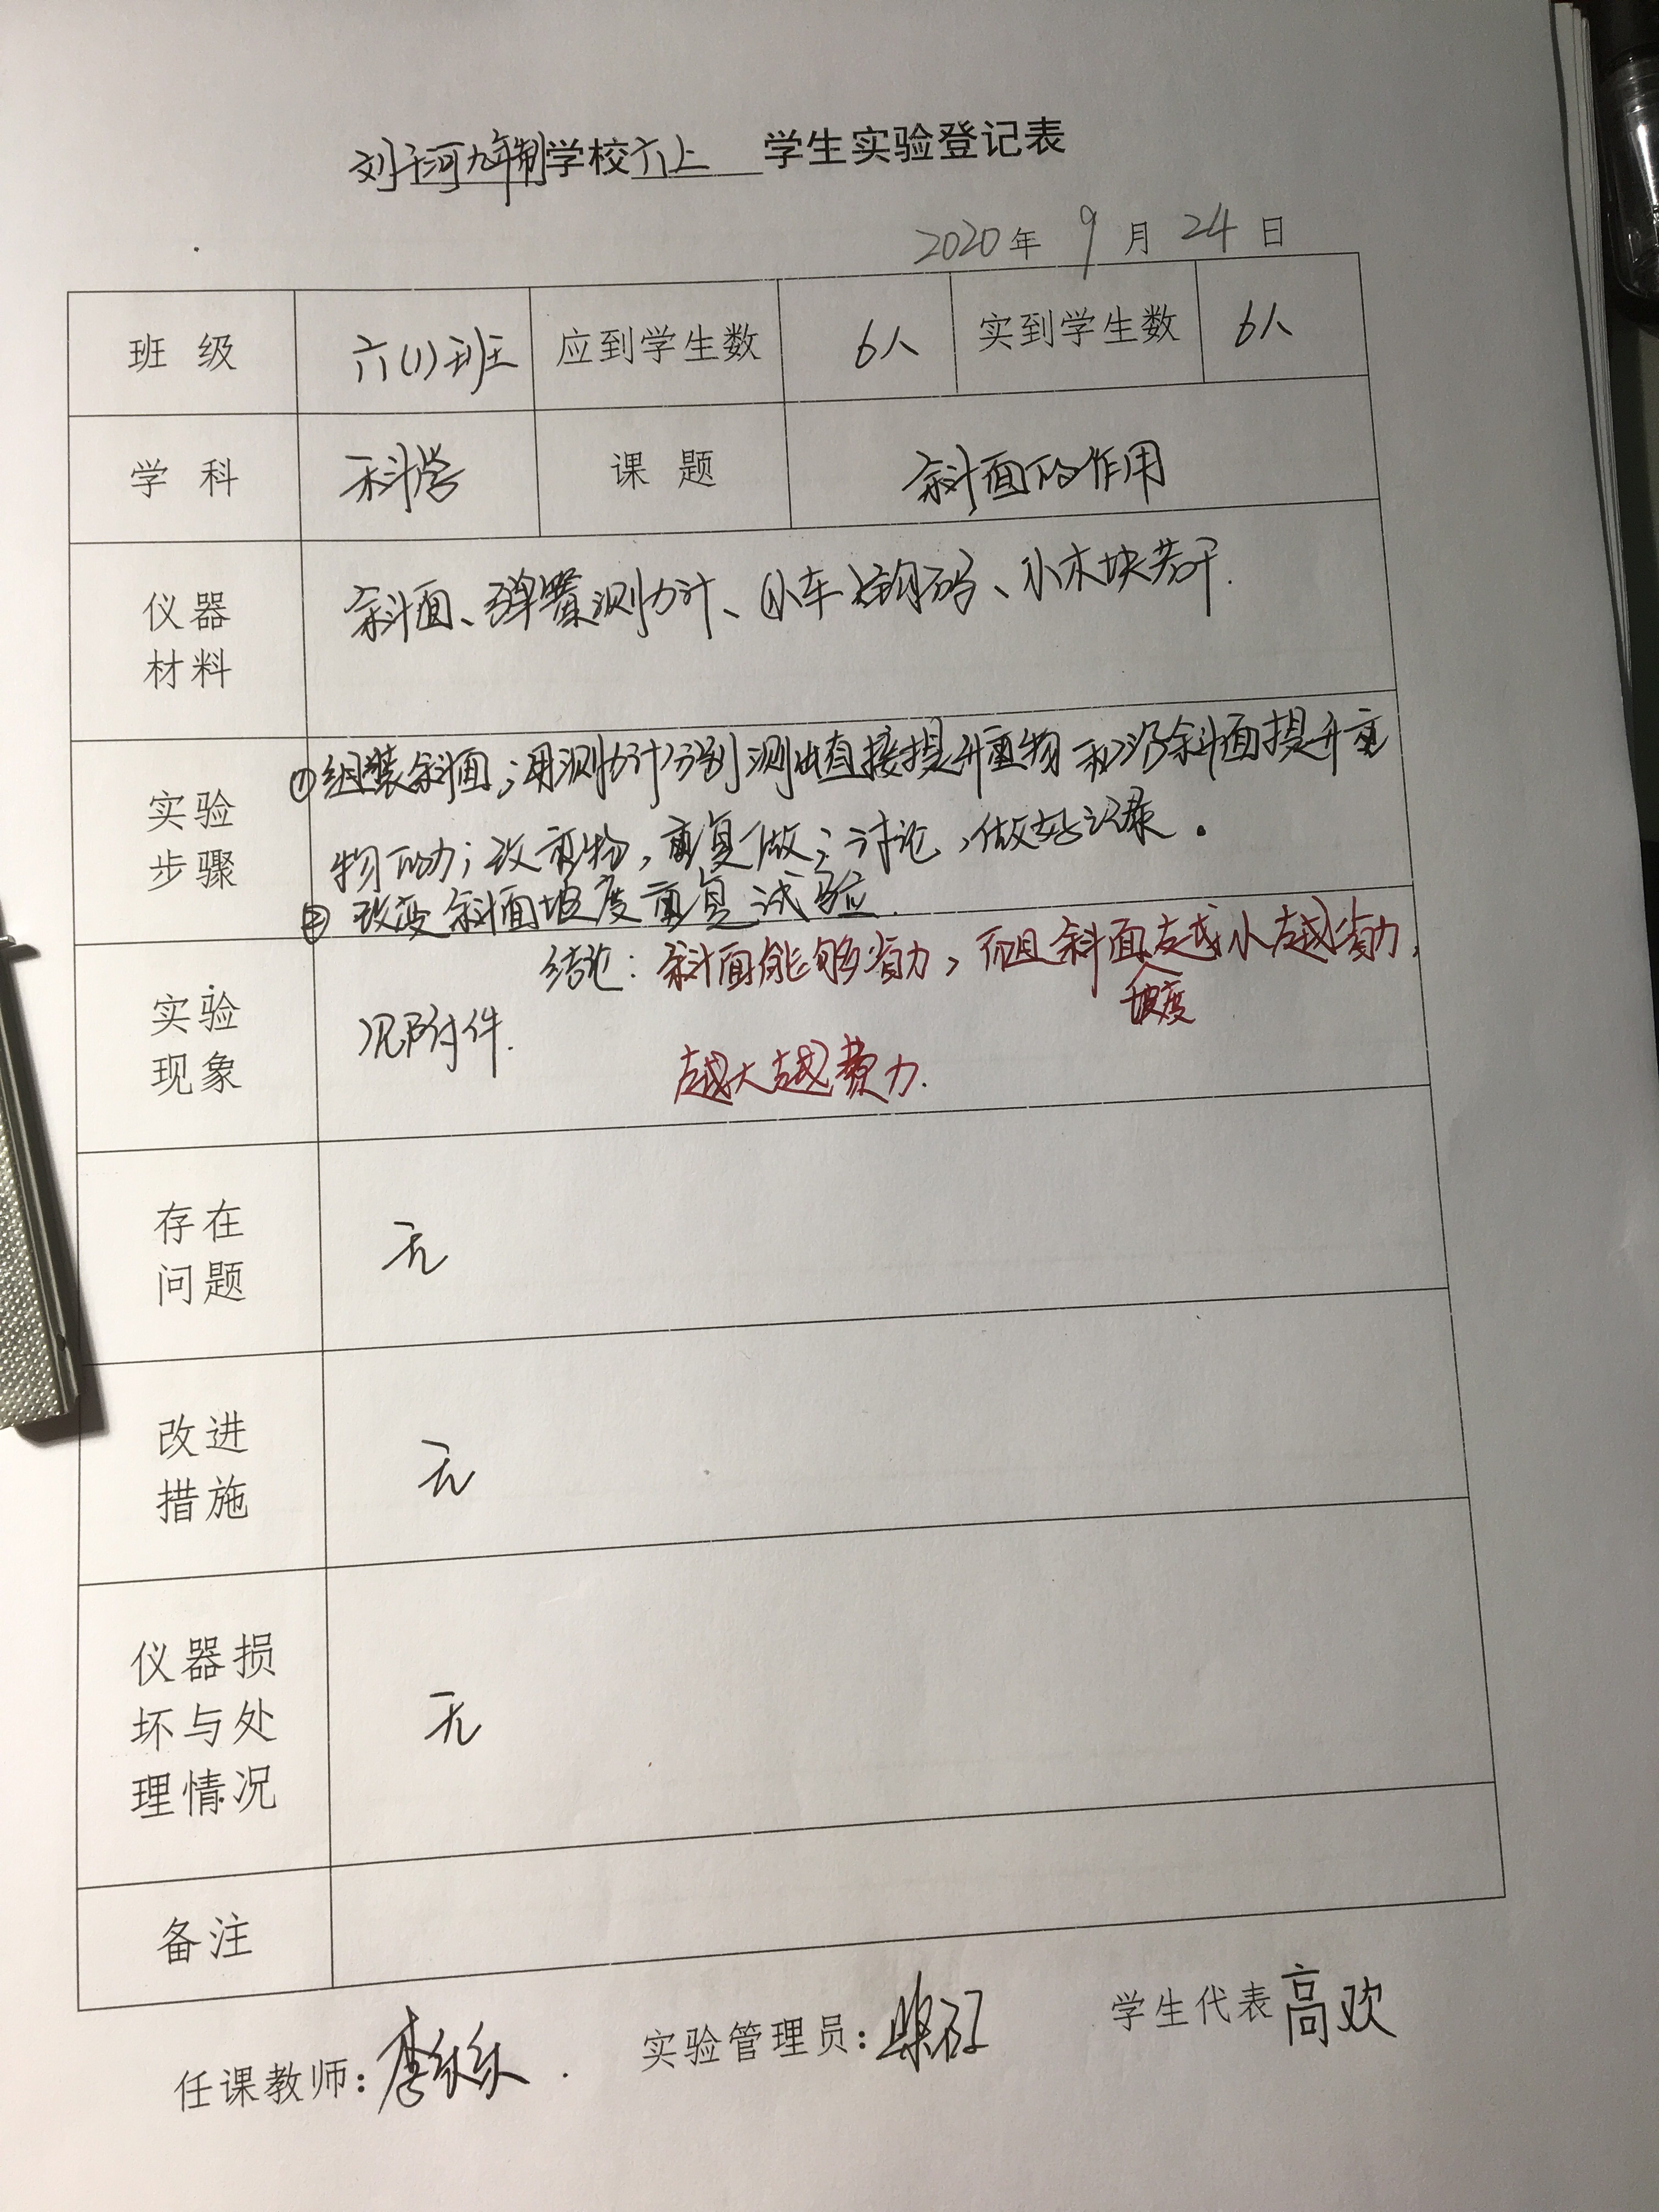 刘干河九年制学校六上 学生实验登记表
2020年 9月 24日
班级 六(1)班 应到学生数 6人 实到学生数 6人
学科 科学 课题 斜面的作用
仪器材料 斜面、弹簧测力计、小车 钩码、小木块若干.
实验步骤 ①组装斜面;用测力计分别测出直接提升重物和沿斜面提升重
物的力;改变物,重复做;讨论,做好记录。
②改变斜面坡度重复试验.
结论:斜面能够省力,而且斜面坡度越小越省力,
实验现象 见附件.
越大越费力.
存在问题 无
改进措施 无
仪器损坏与处理情况 无
备注
任课教师: 实验管理员: 学生代表 高欢